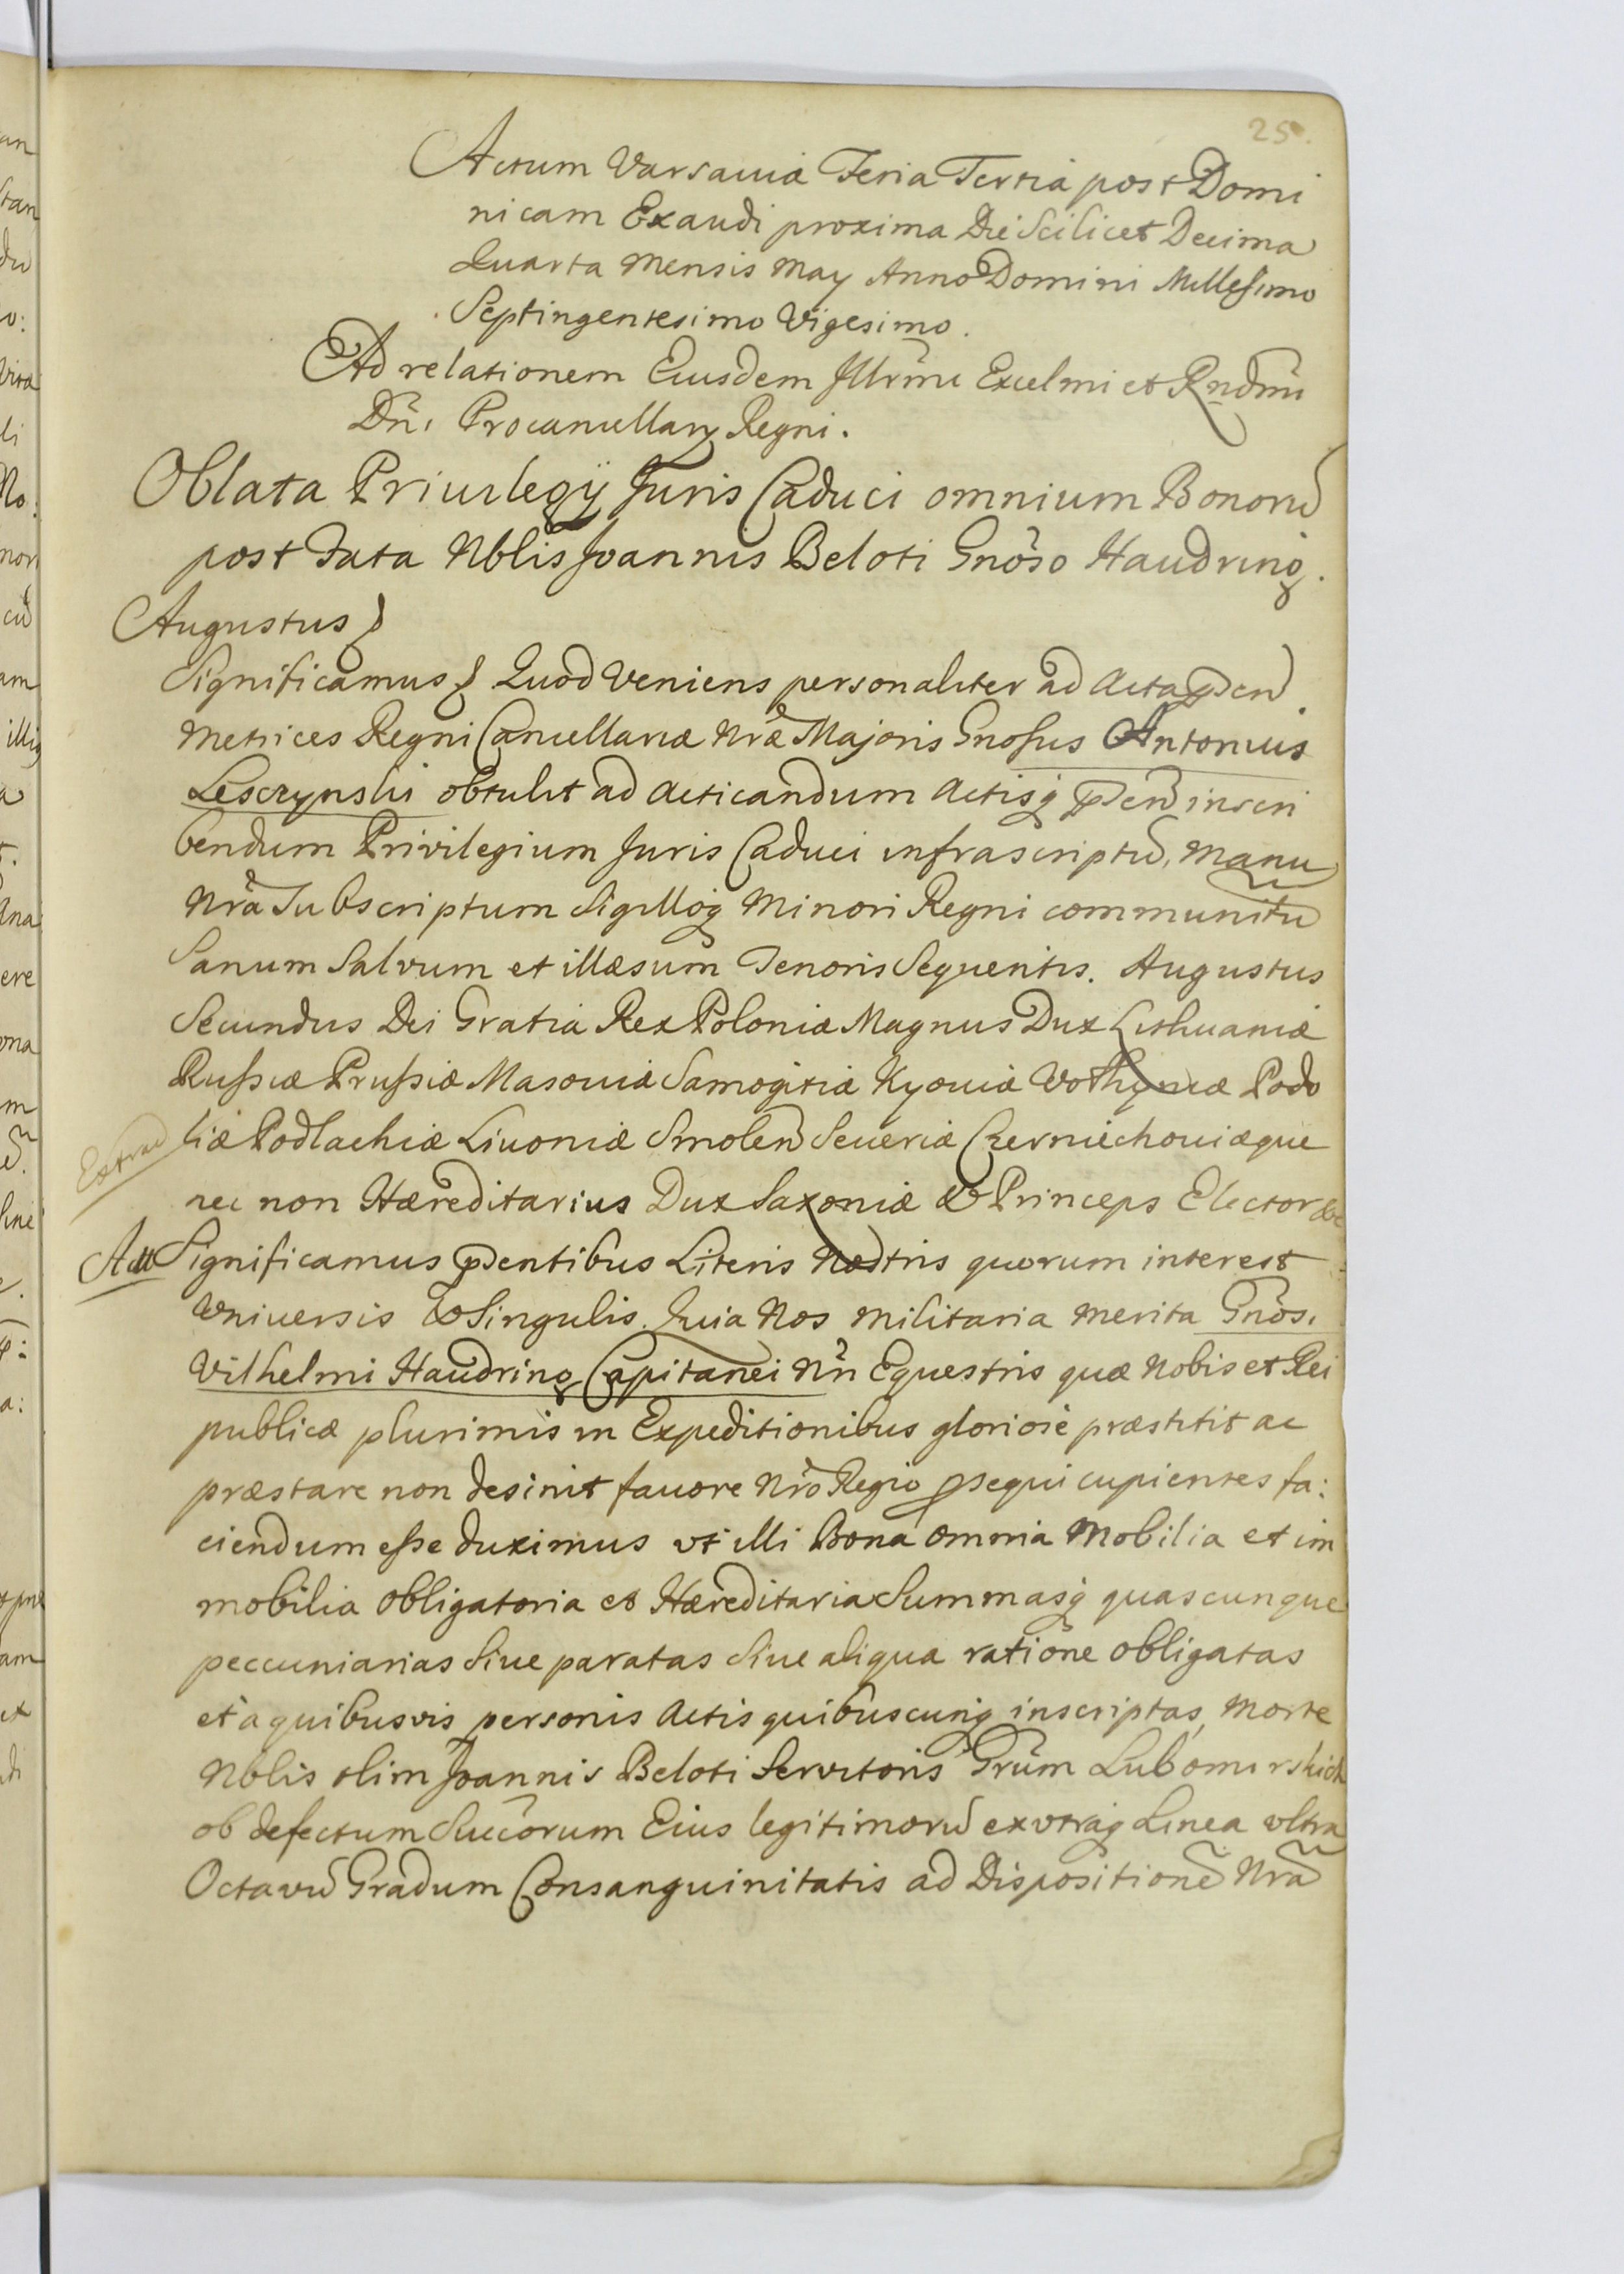 25.
Actum Varsaviæ Feria Tertia post Domi
nicam Exaudi proxima Die Scilicet Decima
Quarta Mensis May Anno Domini Millesimo
Septingentesimo Vigesimo.
Ad relationem Eiusdem Illrmi Excelmi et Rndmi
Dni Procancellary Regni.
Oblata Priuilegÿ Juris Caduci omnium Bonorũ
post Fata Nblis Joannis Beloti Gnoso Haudring.
Augustus
Significamus Quod Veniens personaliter ad Acta pñsen
Metrices Regni Cancellariæ Nræ Majoris Gnosus Antonius
Lesczynski obtulit ad acticandum Actisq pñsen inscri
bendum Privilegium Juris Caduci infrascriptũ, Manu
Nrâ Subscriptum Sigilloq Minori Regni communitũ
Sanum Salvum et illæsum Tenoris Sequentis. Augustus
Secundus Dei Gratia Rex Poloniæ Magnus Dux Lithuaniæ
Russiæ Prussiæ Masoviæ Samogitiæ Kyoviæ Volhyniæ Podo
liæ Podlachiæ Livoniæ Smolen Severiæ Czerniechoviæque
Extrad
nec non Hæreditarius Dux Saxoniæ & Princeps Elector &c
Significamus pñsentibus Literis Nostris quorum interest
Vniuersis & Singulis. Quia Nos Militaria Merita Gnosi
Vilhelmi Haudring Capitanei Nri Equestris quæ Nobis et Rei
publicæ plurimis in Expeditionibus gloriose præstitit ac
præstare non desinit favore Nro Regio psequi cupientes fa:
ciendum esse duximus vt illi Bona omnia Mobilia et im
mobilia obligatoria et Hæreditaria Summasq quascunque
peccuniarias Siue paratas Siue aliqua ratione obligatas
et à quibusvis personis Actis quibuscunq inscriptas, Morte
Nblis olim Joannis Beloti Servitoris Grum Lubomirskich
ob defectum Succorum Eius legitimorũ ex vtraq Linea vltra
Octavũ Gradum Consanguinitatis ad Dispositionẽ Nrã